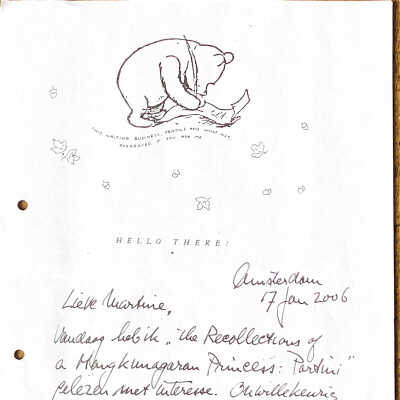 THIS WRITING BUSINESS, PENCILS AND WHAT NOT,
OVERRATED IF YOU ASK ME
HELLO THERE!
Amsterdam
17 Jan 2006
Lieve Martine,
Vandaag heb ik „The Recollections of
a Mangkunagaran Princess: Partini"
gelezen met interesse. Onwillekeurig